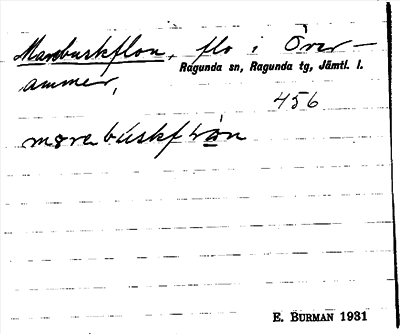 Marebuskflon, flo i Över-
Ragunda sn, Ragunda tg, Jämtl. l.
ammer,
456
E. BURMAN 1931